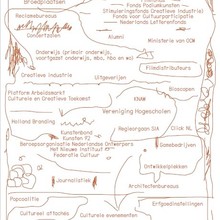 Broedplaatsen
Fonds Podiumkunsten
Stimuleringsfonds Creatieve Industrie
Reclamebureaus
Fonds voor Cultuurparticipatie
Nederlands Letterenfonds
Concertzalen
Alumni
Ministerie van OCW
Onderwijs (primair onderwijs,
voortgezet onderwijs, mbo, hbo en wo)
Filmdistributeurs
Creatieve Industrie
Uitgeverijen
Bioscopen
Platform Arbeidsmarkt
Culturele en Creatieve Toekomst
KNAW
Vereniging Hogescholen
Holland Branding
Regieorgaan SIA
Click NL
Kunstenbond
Kunsten '92
Beroepsorganisatie Nederlandse Ontwerpers
Gamebedrijven
Het Nieuwe Instituut
Federatie Cultuur
Ontwikkelplekken
Journalistiek
Architectenbureaus
Popcoalitie
Erfgoedinstellingen
Cultureel attachés
Culturele evenementen